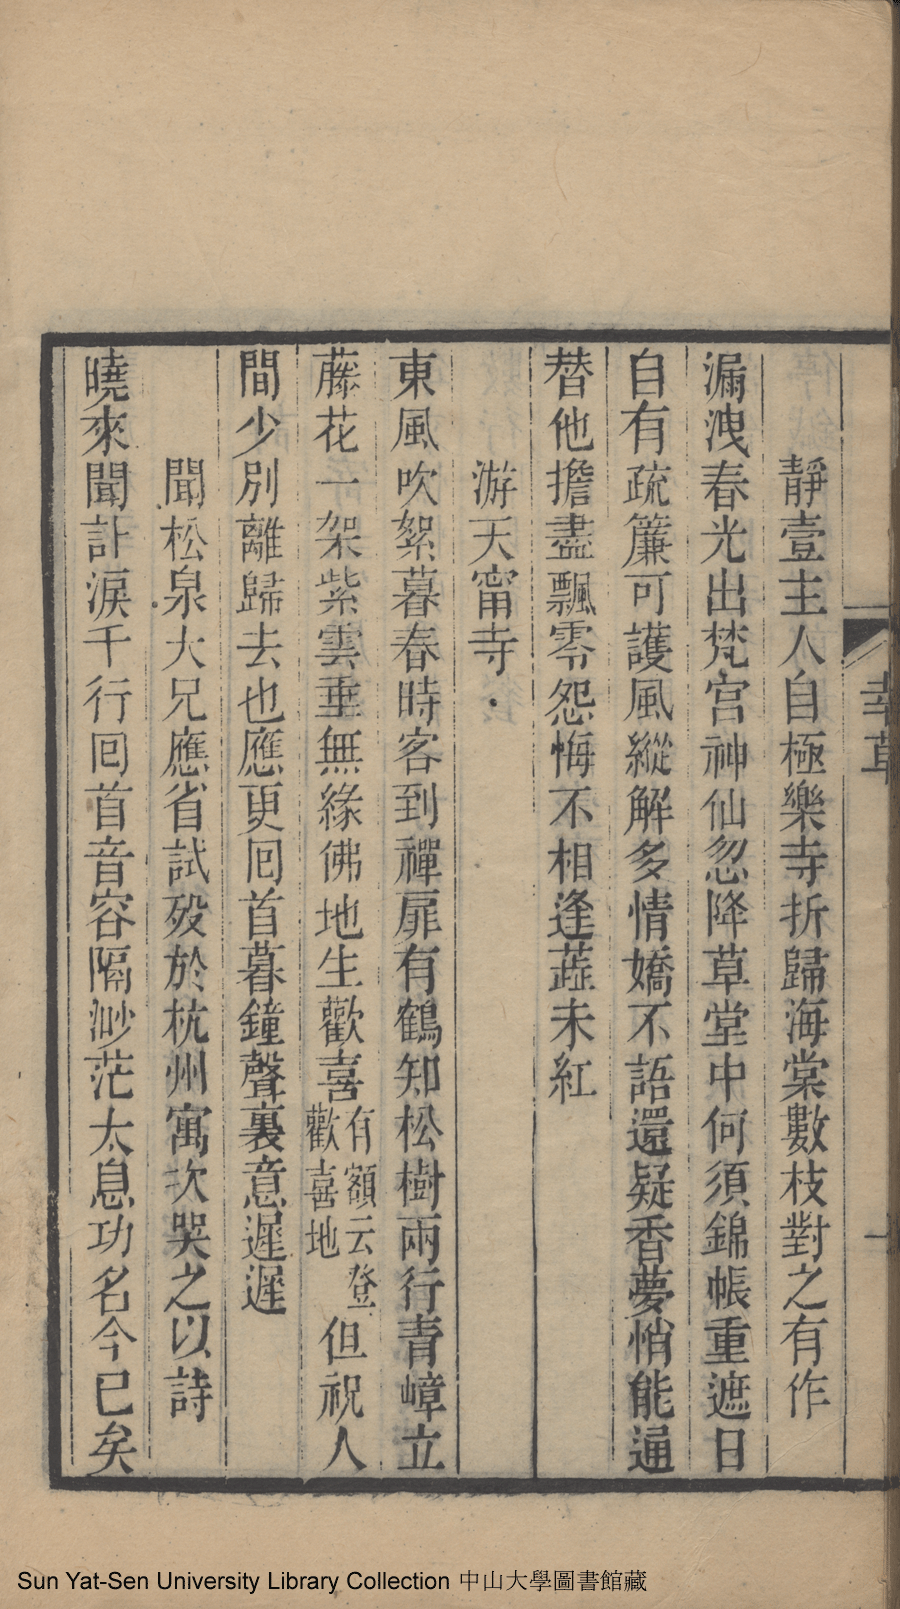 靜壹主人自極樂寺折歸海棠數枝對之有作
漏洩春光出梵宮神仙忽降草堂中何須錦帳重遮日
自有疏簾可護風縱解多情嬌不語還疑香夢悄能通
替他擔盡飄零怨悔不相逢蕋未紅
游天甯寺
東風吹絮暮春時客到禪扉有鶴知松樹兩行青嶂立
藤花一架紫雲垂無緣佛地生歡喜有額云登歡喜地但祝人
間少別離歸去也應更回首暮鐘聲裏意遲遲
聞松泉大兄應省試歿於杭州寓次哭之以詩
曉來聞訃淚千行回首音容隔渺茫太息功名今已矣
Sun Yat-Sen University Library Collection 中山大學圖書館藏